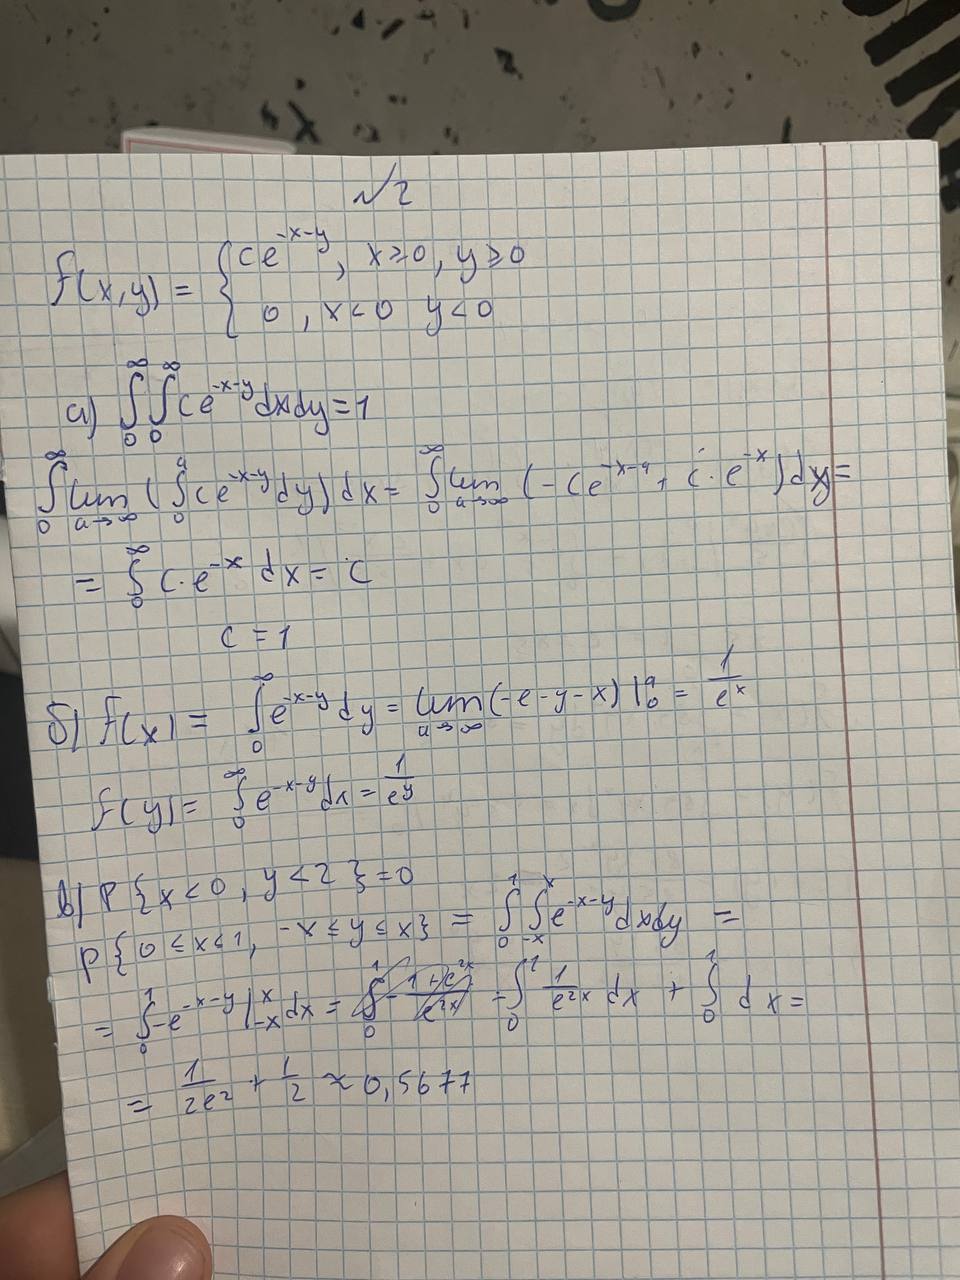 √2
f(x,y) = { ce^{-x-y}, x≥0, y≥0
0, x<0 y<0
а) ∫_0^∞ ∫_0^∞ ce^{-x-y} dx dy = 1
∫_0^∞ lim_{a→∞} (∫_0^a ce^{-x-y} dy) dx = ∫_0^∞ lim_{a→∞} (-ce^{-x-a} + c·e^{-x}) dx =
= ∫_0^∞ c·e^{-x} dx = c
c = 1
б) f(x) = ∫_0^∞ e^{-x-y} dy = lim_{a→∞} (-e-y-x) |_0^a = 1/e^x
f(y) = ∫_0^∞ e^{-x-y} dx = 1/e^y
в) P{x<0, y<2} = 0
P{0≤x≤1, -x≤y≤x} = ∫_0^1 ∫_{-x}^x e^{-x-y} dx dy =
= ∫_0^1 -e^{-x-y} |_{-x}^x dx = -∫_0^1 1/e^{2x} dx + ∫_0^1 dx =
= 1/2e^2 + 1/2 ≈ 0,5677